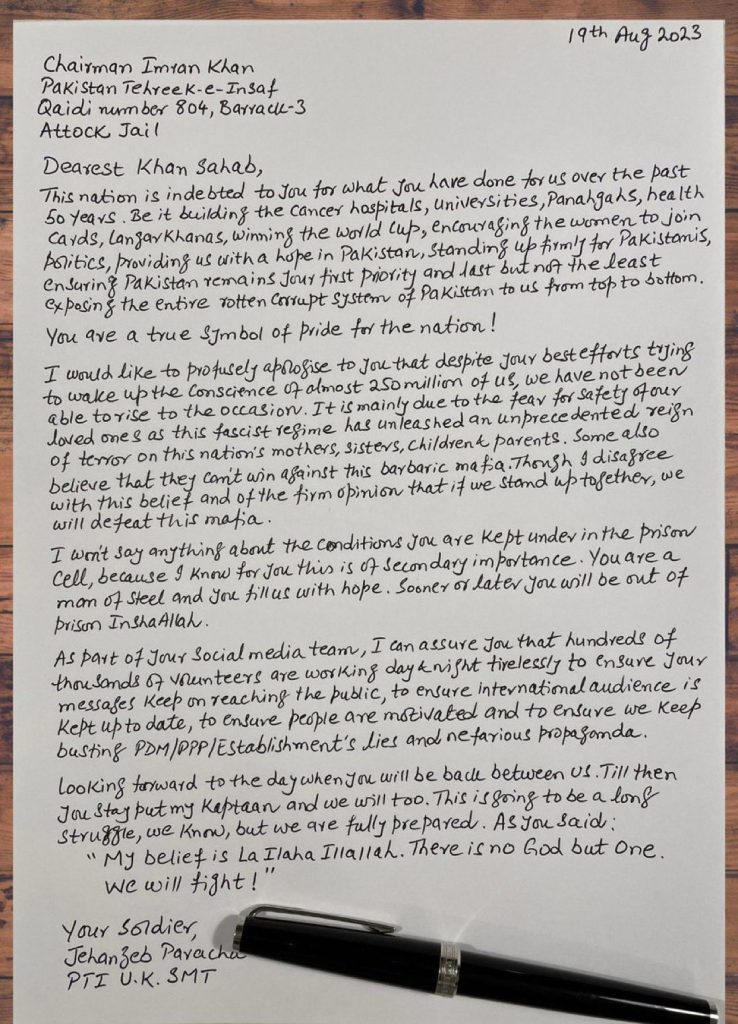 19th Aug 2023
Chairman Imran Khan
Pakistan Tehreek-e-Insaf
Qaidi number 804, Barrack-3
Attock Jail
Dearest Khan Sahab,
This nation is indebted to you for what you have done for us over the past
50 years. Be it building the cancer hospitals, universities, Panahgahs, health
cards, LangarKhanas, winning the world cup, encouraging the women to join
politics, providing us with a hope in Pakistan, standing up firmly for Pakistanis,
ensuring Pakistan remains your first priority and last but not the least
exposing the entire rotten corrupt system of Pakistan to us from top to bottom.
You are a true symbol of pride for the nation!
I would like to profusely apologise to you that despite your best efforts trying
to wake up the conscience of almost 250 million of us, we have not been
able to rise to the occasion. It is mainly due to the fear for safety of our
loved ones as this fascist regime has unleashed an unprecedented reign
of terror on this nation's mothers, sisters, children & parents. Some also
believe that they can't win against this barbaric mafia. Though I disagree
with this belief and of the firm opinion that if we stand up together, we
will defeat this mafia.
I won't say anything about the conditions you are kept under in the prison
cell, because I know for you this is of secondary importance. You are a
man of steel and you fill us with hope. Sooner or later you will be out of
prison InshaAllah.
As part of your social media team, I can assure you that hundreds of
thousands of volunteers are working day & night tirelessly to ensure your
messages keep on reaching the public, to ensure international audience is
kept up to date, to ensure people are motivated and to ensure we keep
busting PDM/PPP/Establishment's lies and nefarious propaganda.
Looking forward to the day when you will be back between us. Till then
you stay put my Kaptaan and we will too. This is going to be a long
struggle, we know, but we are fully prepared. As you said:
"My belief is La Ilaha Illallah. There is no God but One.
We will fight!"
Your Soldier,
Jehanzeb Paracha
PTI U.K. SMT